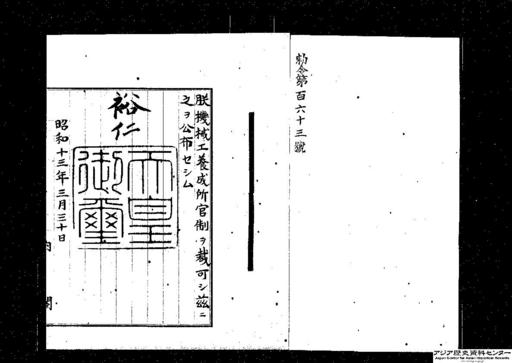 勅令第百六十三號
朕機械工養成所官制ヲ裁可シ茲ニ
之ヲ公布セシム
裕仁
天皇御璽
昭和十三年三月三十日
内閣
アジア歴史資料センター
Japan Center for Asian Historical Records